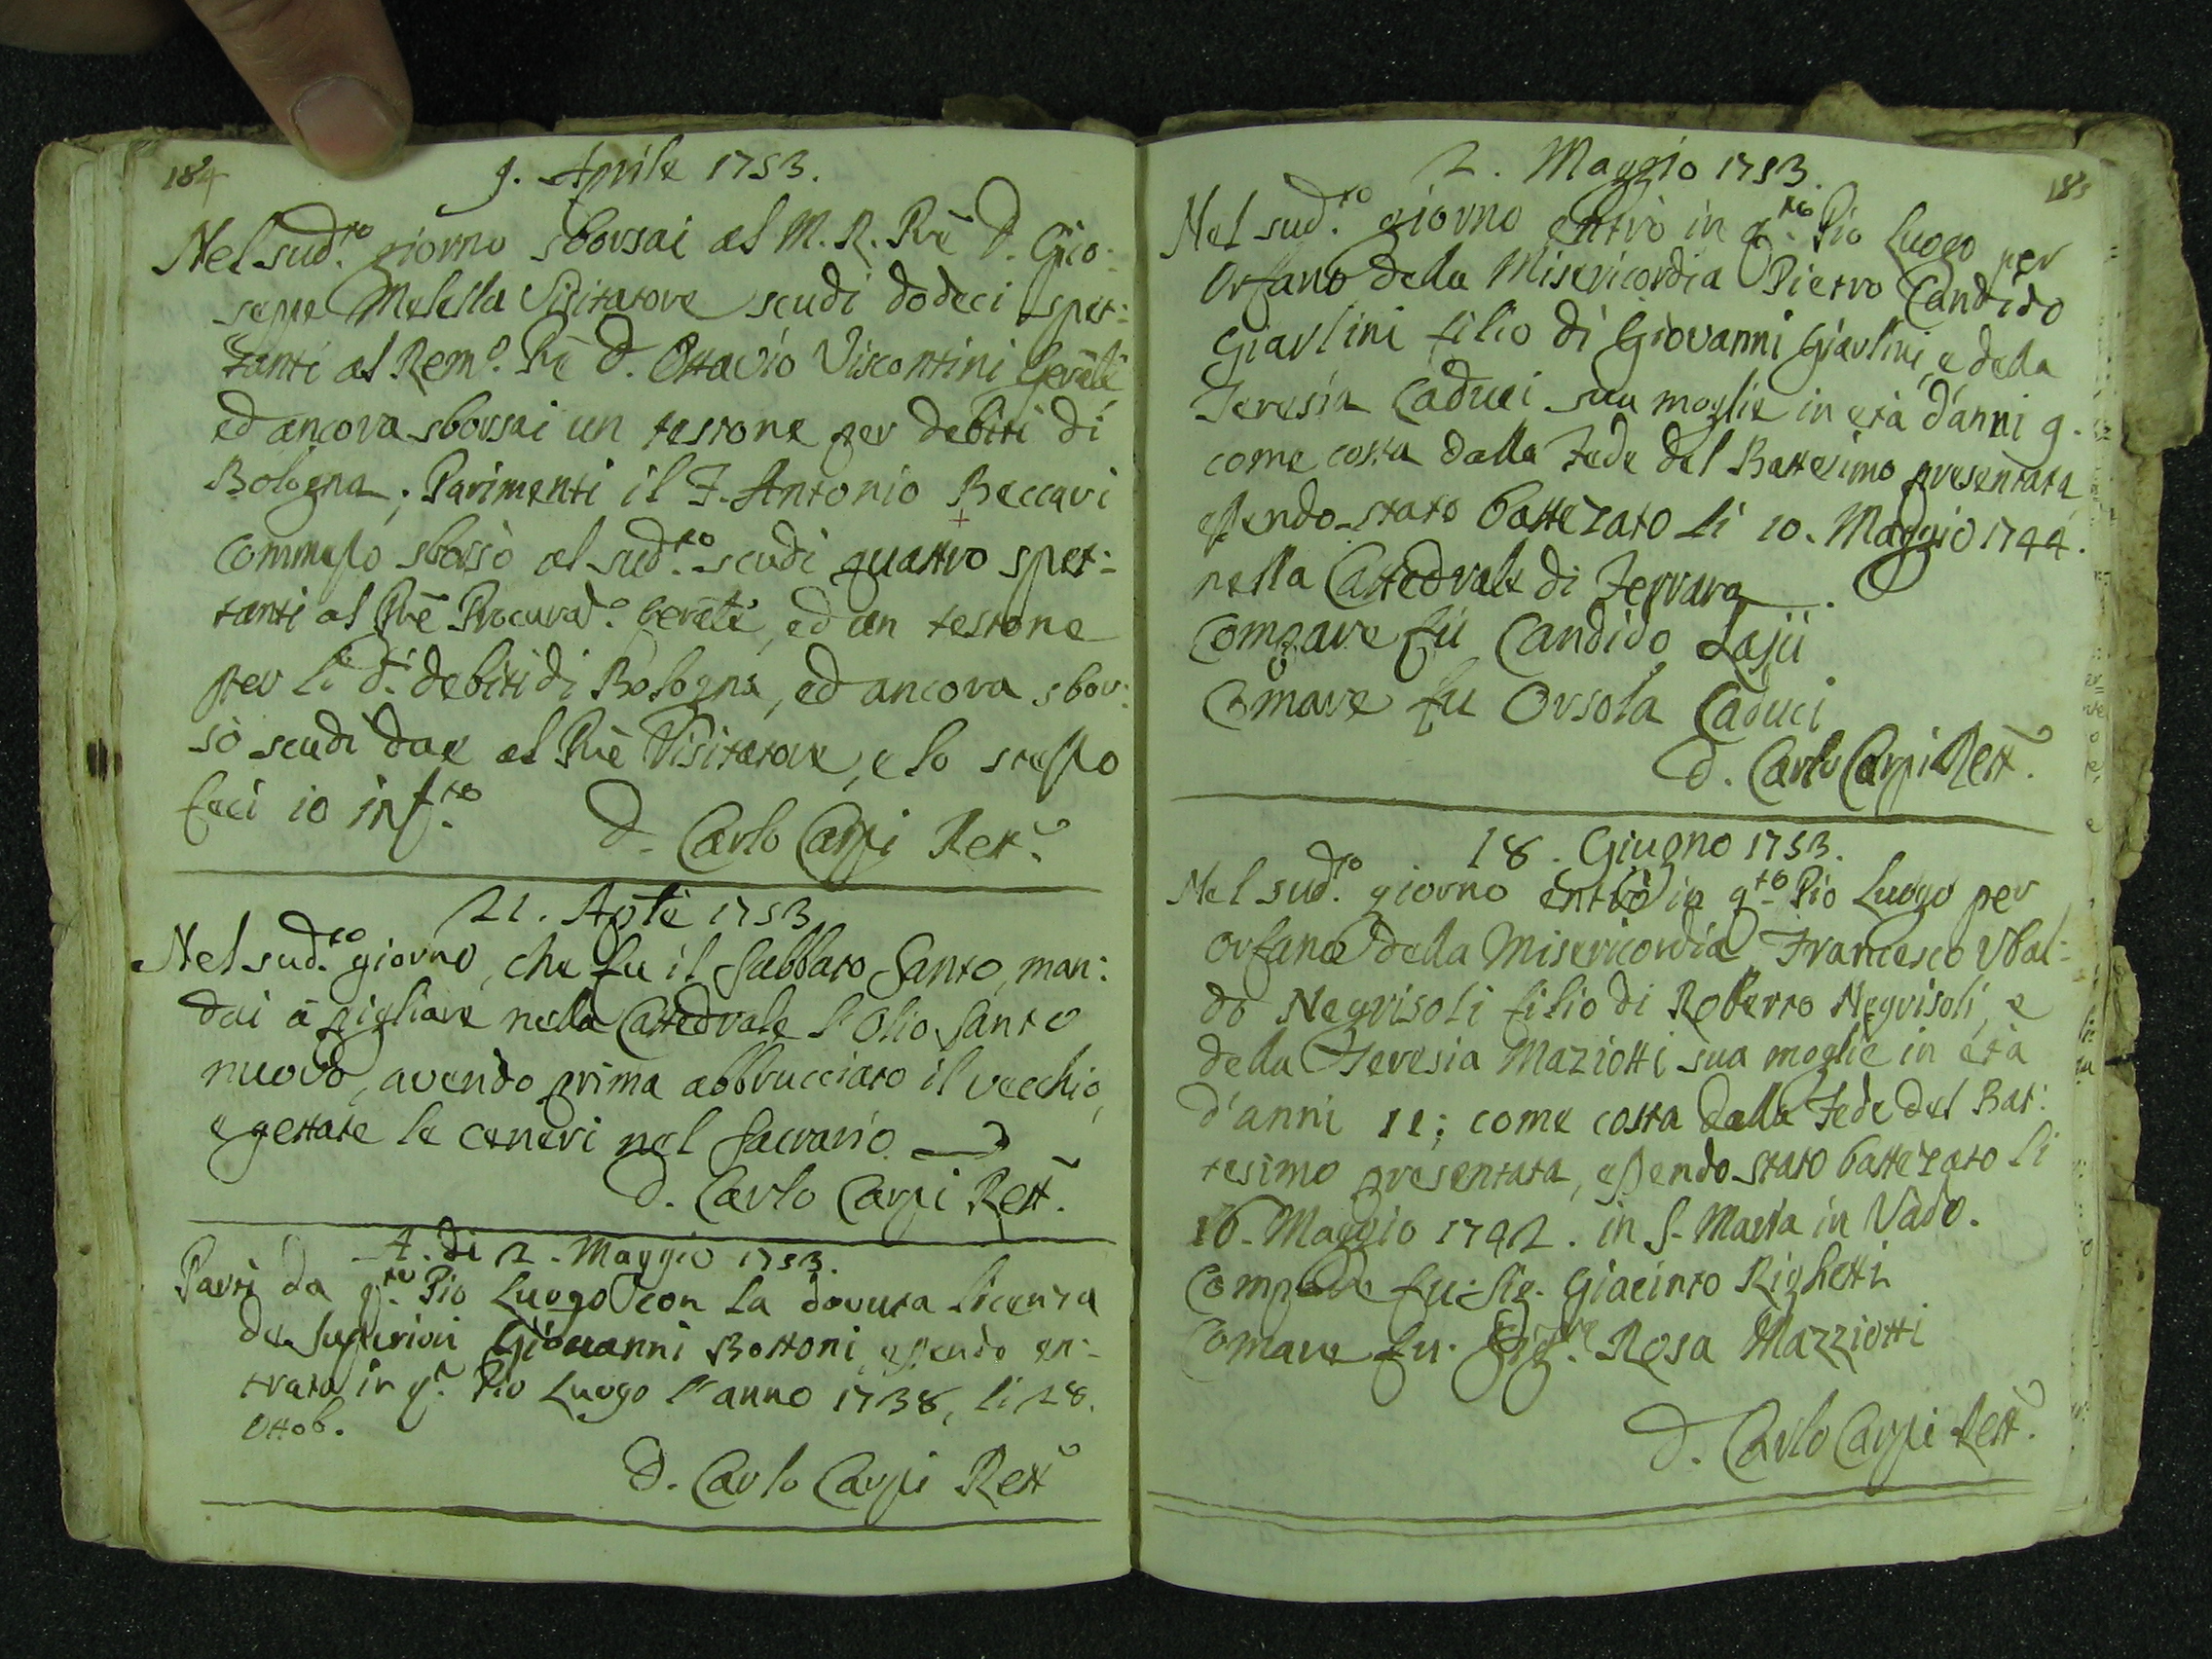 184
9. Aprile 1753.
Nel sud.to giorno sborsai al M. R. Prê D. Gio-
seppe Melella Visitatore scudi dodeci spet:
tanti al Rem.o Prê D. Ottavio Viscontini Genêlê
ed ancora sborsai un testone per debiti di
Bologna; Parimenti il F. Antonio Beccari
Commesso sborsò al sud.to scudi quattro spet:
tanti al Prê Procurad.o Genêlê, ed un testone
per li d.i debiti di Bologna, ed ancora sbor:
sò scudi due al Prê Visitatore, e lo stesso
feci io inf.to D. Carlo Carpi Rett.e
21. Aplê 1753
Nel sud.to giorno, che fu il Sabbato Santo, man:
dai à pigliare nella Cattedrale l'Olio Santo
nuovo, avendo prima abbrucciato il vecchio,
e gettate le ceneri nel Sacrario.
D. Carlo Carpi Rett.
A. di 2. Maggio 1753.
Partì da q.to Pio Luogo con la dovuta licenza
de Superiori Giovanni Bottoni, essendo en-
trato in q.o Pio Luogo l'anno 1738, li 28.
Ottob.
D. Carlo Carpi Rett.e
185
2. Maggio 1753.
Nel sud.to giorno entrò in q.to Pio Luogo per
Orfano della Misericordia Pietro Candido
Giarlini filio di Giovanni Giarlini, e della
Teresia Caduci sua moglie in età d'anni 9.
come costa dalla Fede del Battesimo presentata,
essendo stato battezato li 10. Maggio 1744.
nella Cattedrale di Ferrara.
Compare fù Candido
Comare fu Orsola Caduci
D. Carlo Carpi Rett.e
18. Giugno 1753.
Nel sud.to giorno entrò in q.to Pio Luogo per
Orfano della Misericordia Francesco Ubal:
do Negrisoli filio di Roberto Negrisoli, e
della Teresia Maziotti sua moglie in età
d'anni 11; come costa dalla Fede del Bat:
tesimo presentata, essendo stato battezato li
16. Maggio 1742. in S. Maria in Vado.
Compare fu: Sig. Giacinto Righetti
Comare fu: Sig.ra Rosa Mazziotti
D. Carlo Carpi Rett.e